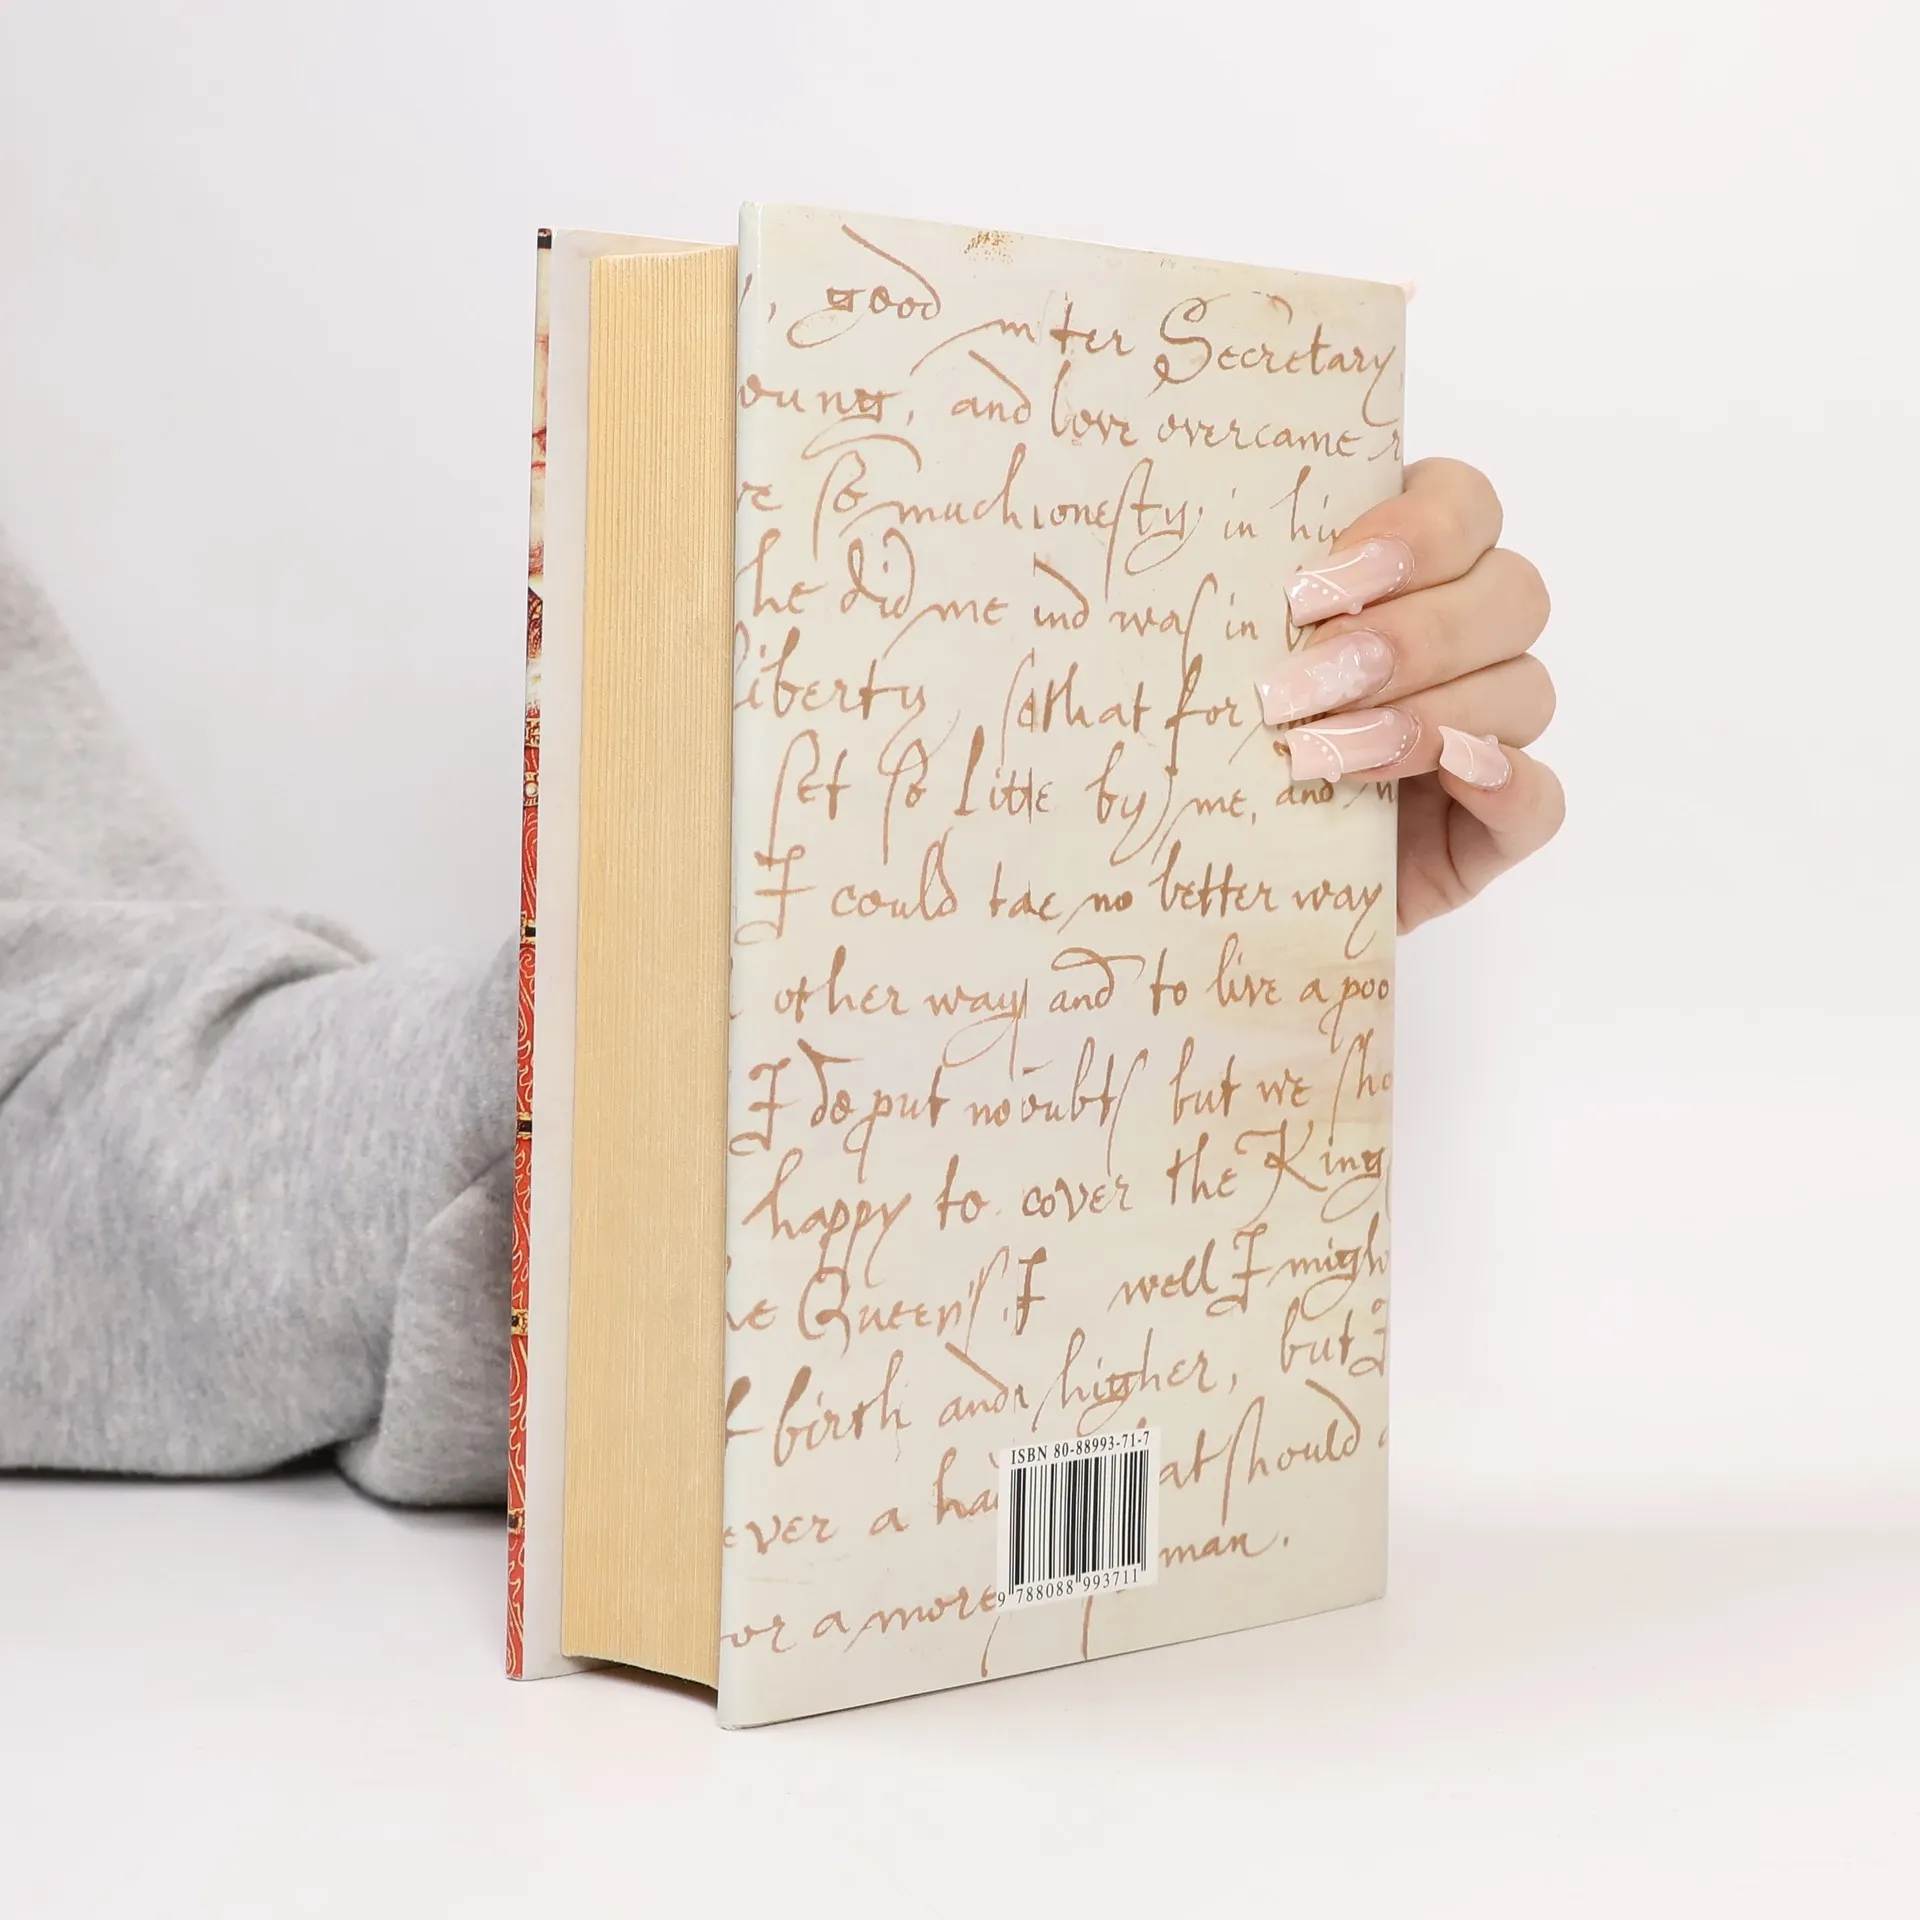 , good m ter Secretary,
oung, and love overcame r
re so much onesty in hi
he did me ind was in
liberty, so that for
set so little by me, and n
I could tae no better way
other way, and to live a poo
I do put no oubts but we sho
happy to cover the King
e Queen's. I well I migh
f birth and higher, but I
ever a ha at should
or a more man.
ISBN 80-88993-71-7
9 788088 993711